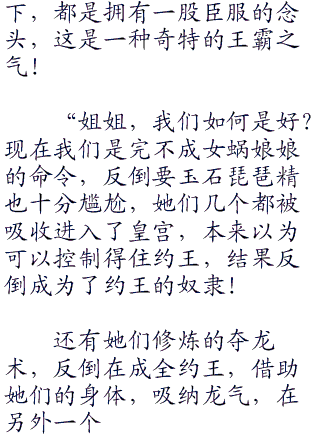 下，都是拥有一股臣服的念
头，这是一种奇特的王霸之
气！
“姐姐，我们如何是好？
现在我们是完不成女蜗娘娘
的命令，反倒要玉石琵琶精
也十分尴尬，她们几个都被
吸收进入了皇宫，本来以为
可以控制得住约王，结果反
倒成为了约王的奴隶！
还有她们修炼的夺龙
术，反倒在成全约王，借助
她们的身体，吸纳龙气，在
另外一个